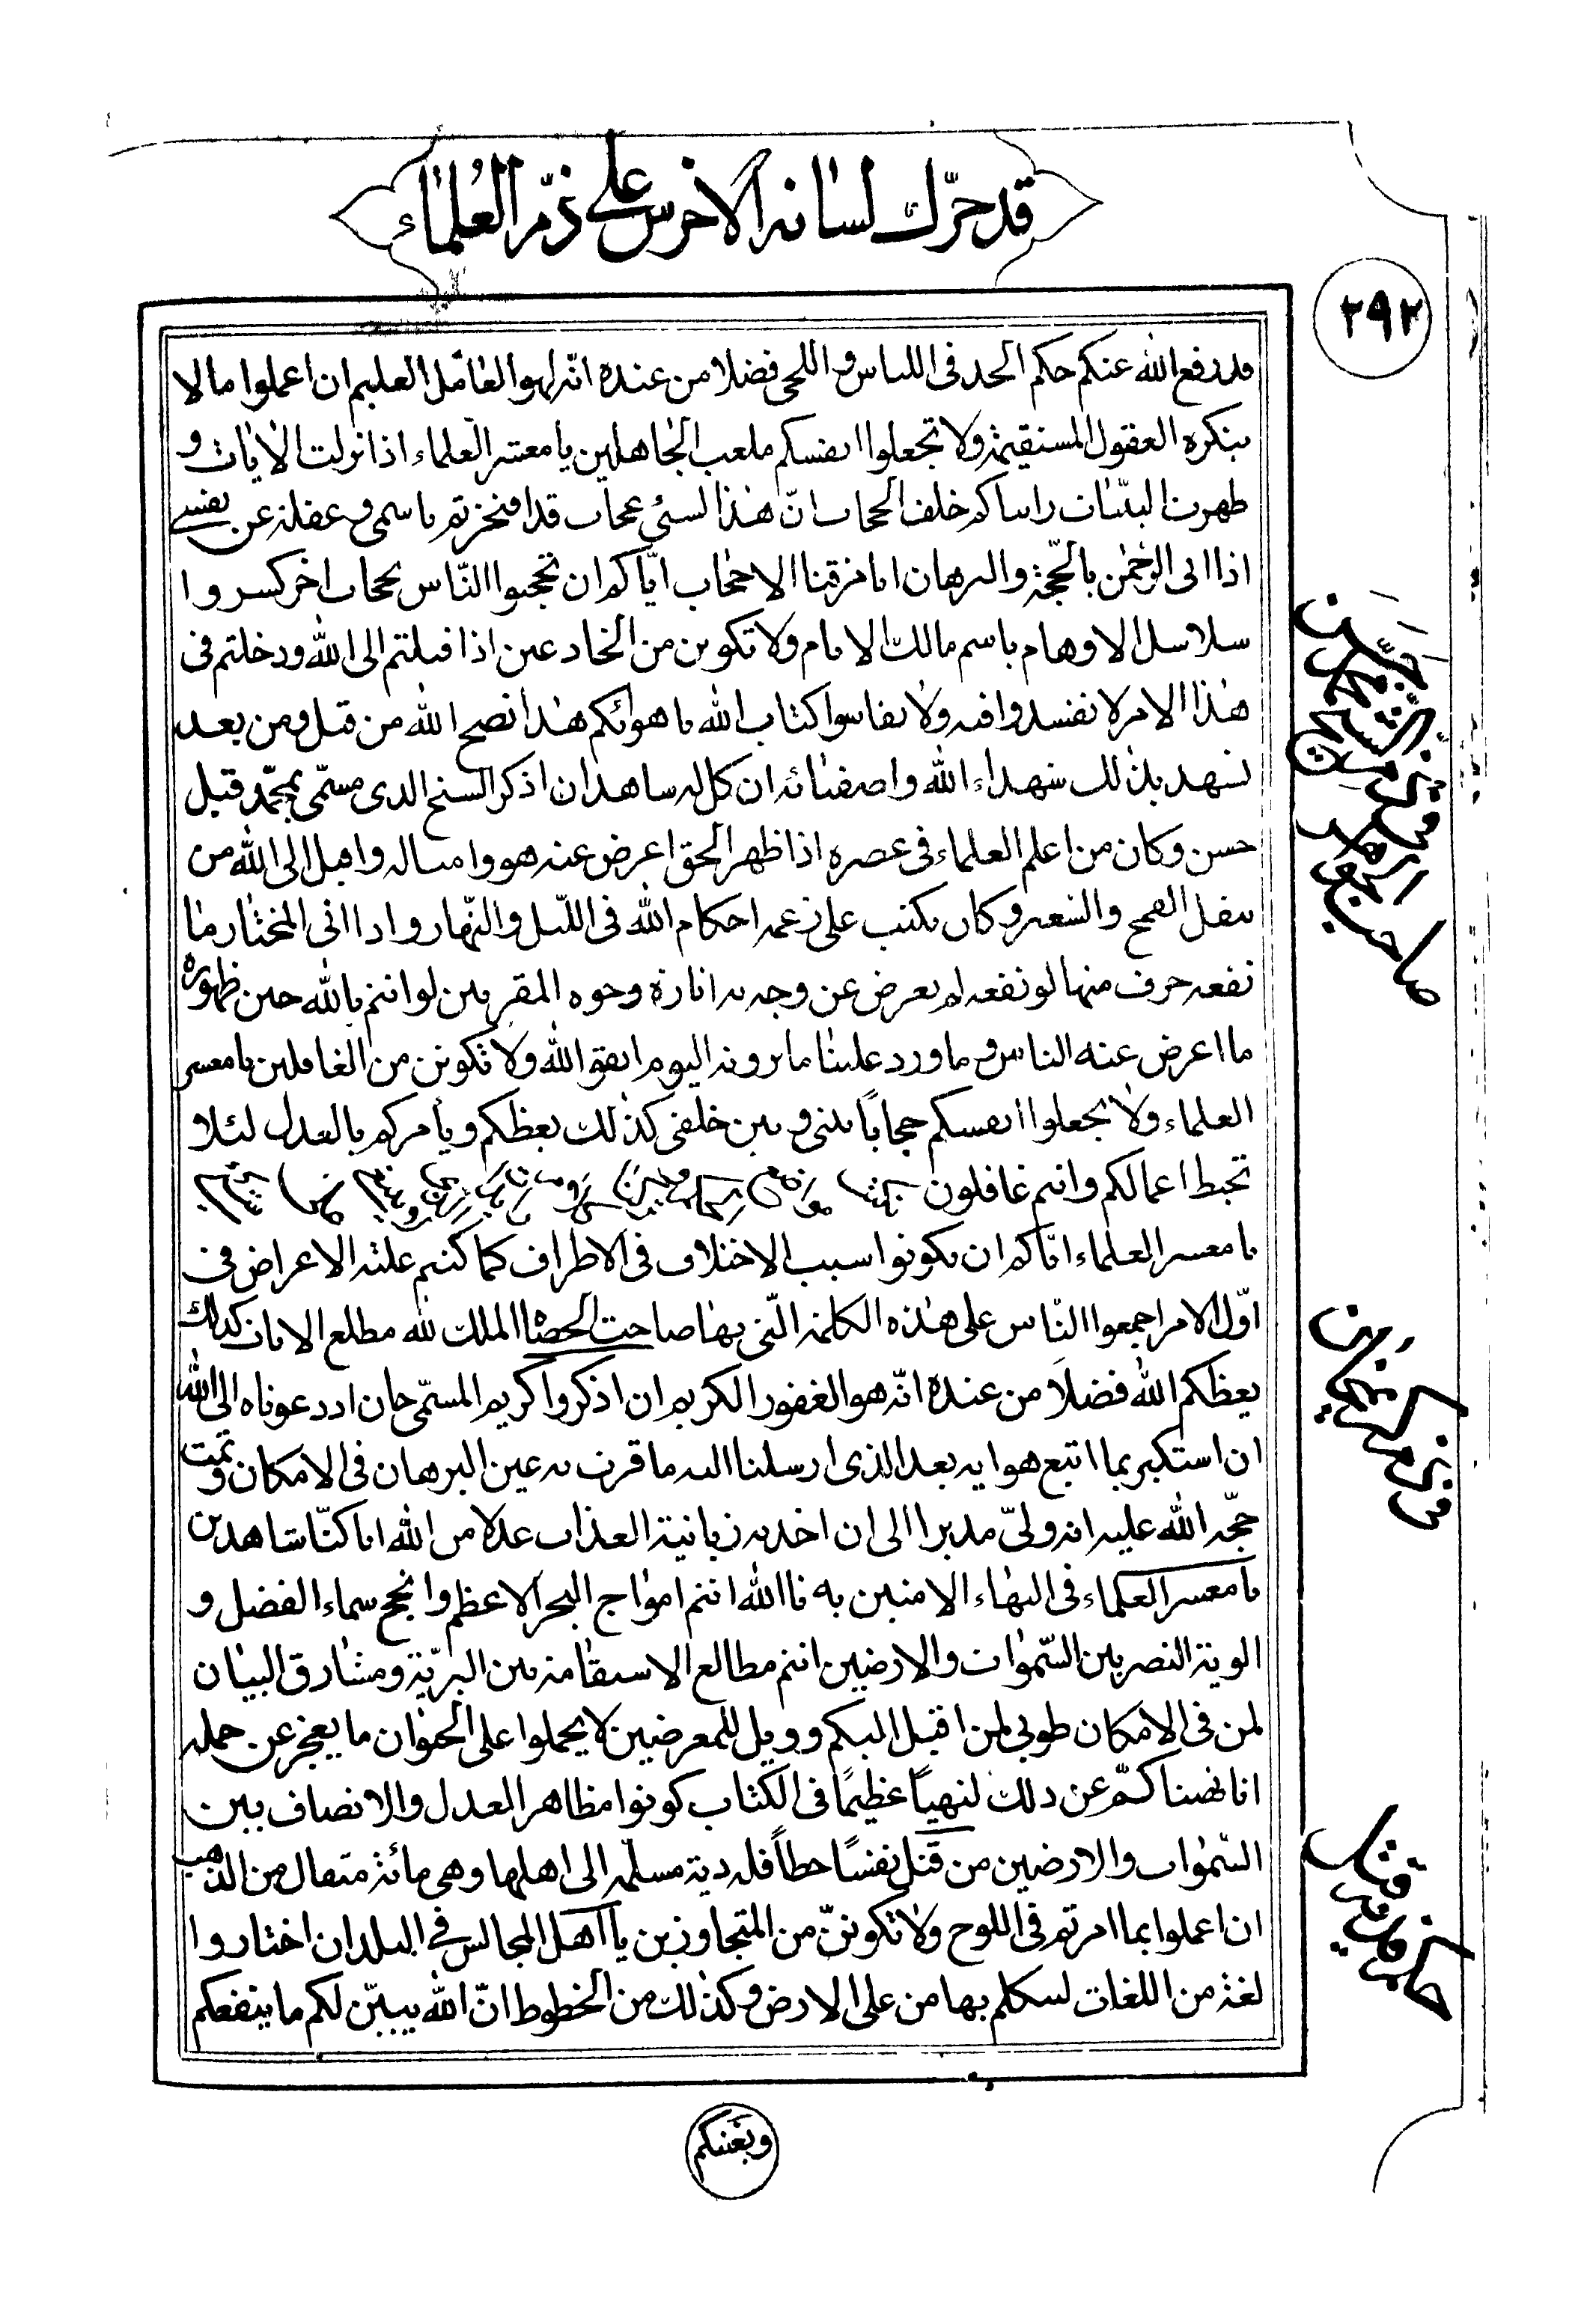 قد حرّك لسانه الاخرس على ذمّ العُلمآء
٢٩٢
قد رفع الله عنكم حكم الحد فى اللباس و اللحى فضلا من عنده انّه لهو العامل العليم ان اعملوا ما لا
ينكره العقول المستقيمة ولا تجعلوا انفسكم ملعب الجاهلين يا معشر العلماء اذا نزلت الايات و
ظهرت البيّنات راينا كم خلف الحجاب انّ هذا لشئ عجاب قد افتخرتم باسمى و غفلتم عن نفسى
اذا اتى الرحمن بالحجّة والبرهان انا مزقنا الاحجاب ايّاكم ان تحجبوا النّاس بحجاب اخر كسروا
سلاسل الاوهام باسم مالك الانام ولا تكونن من الخادعين اذا اقبلتم الى الله ودخلتم فى
هذا الامر لا تفسدوا فيه ولا تقاسوا كتاب الله باهوائكم هذا نصح الله من قبل ومن بعد
نشهد بذلك شهداء الله واصفيائه ان كل له شاهدان اذكر الشيخ الذى مسمّى بمحمّد قبل
حسن وكان من اعلم العلماء فى عصره اذا ظهر الحق اعرض عنه هو و امثاله واقبل الى الله من
ينقى القمح والشعير وكان يكتب على زعمه احكام الله فى الليل والنّهار واذا اتى المختار ما
نفعه حرف منها لو نفعه لم يعرض عن وجه به انارة وجوه المقربين لو امنتم بالله حين ظهوره
ما اعرض عنه الناس و ما ورد علينا ما ترونه اليوم اتقو الله ولا تكونن من الغافلين يا معشر
العلماء ولا تجعلوا انفسكم حجاباً بينى و بين خلقى كذلك يعظكم ويأمركم بالعدل لئلا و
تحبط اعمالكم وانتم غافلون
يا معشر العلماء ايّاكم ان تكونوا سبب الاختلاف فى الاطراف كما كنتم علة الاعراض فى
اوّل الامر اجمعوا النّاس على هذه الكلمة الّتى بها صاحت الحصاة الملك لله مطلع الايات كذلك
يعظكم الله فضلاً من عنده انّه هو الغفور الكريم ان اذكروا كريم المسمّى خان اذ دعوناه الى الله
ان استكبر بما اتبع هوايه بعد الذى ارسلنا اليه ما قرت به عين البرهان فى الامكان و تمّت
حجّه الله عليه انه ولىّ مدبرا الى ان اخذته زبانية العذاب عدلا من الله انا كنّا شاهدين
يا معشر العلماء فى البهاء الامنين به تا الله انتم امواج البحر الاعظم وانجم سماء الفضل و
الوية النصر بين السّموات والارضين انتم مطالع الاستقامة بين البريّة ومشارق البيان
لمن فى الامكان طوبى لمن اقبل اليكم وويل للمعرضين لا يحملوا على الحيوان ما يعجز عن حمله
انا نهينا كمّ عن ذلك لنهياً عظيمًا فى الكتاب كونوا مظاهر العدل والانصاف بين
السّموات والارضين من قتل نفسًا خطاً فله دية مسلّمة الى اهلها وهى مائة مثقال من الذهب
ان اعملوا بما امرتم فى اللوح ولا تكوننّ من المتجاوزين يا اهل المجالس فى البلدان اختاروا
لغة من اللغات ليتكلم بها من على الارض وكذلك من الخطوط انّ الله يبيّن لكم ما ينفعكم
ويغنيكم